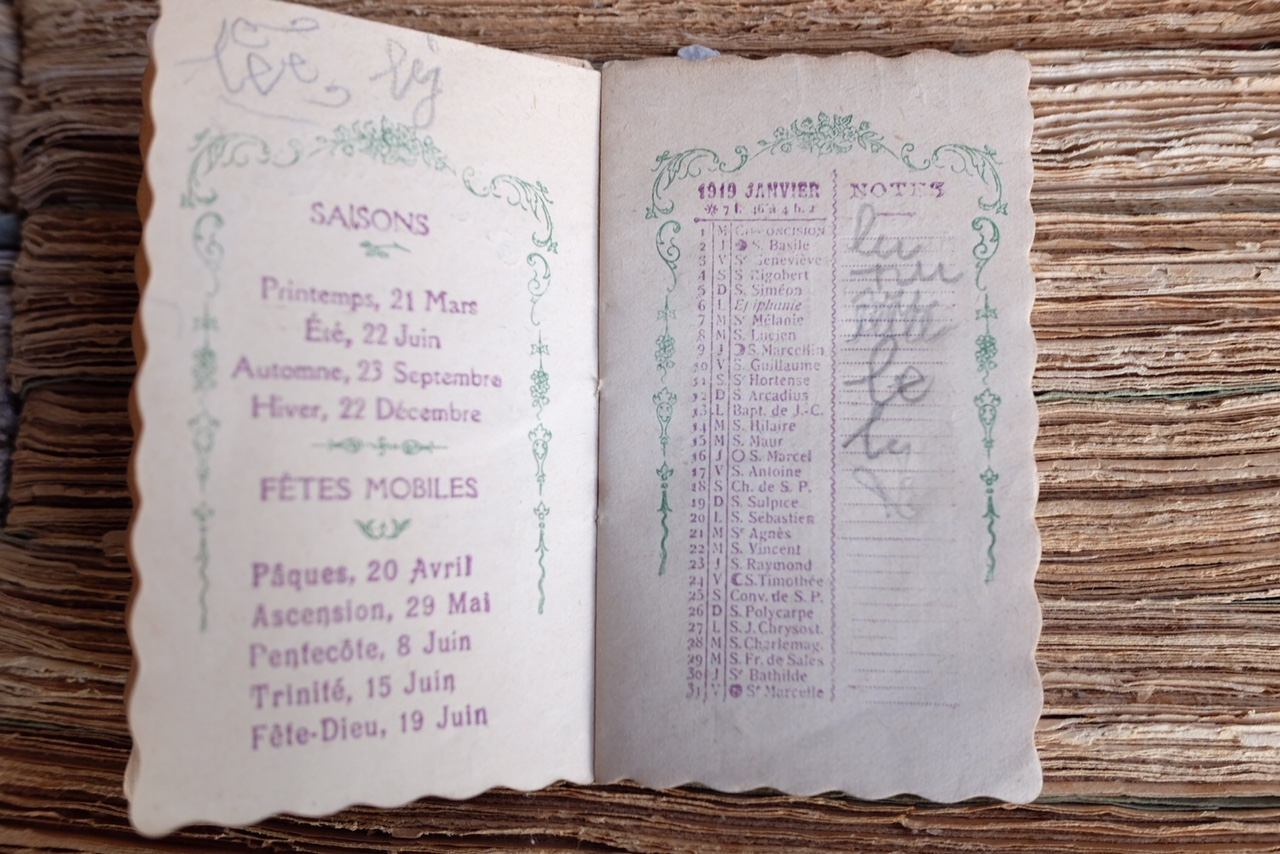 SAISONS
Printemps, 21 Mars
Été, 22 Juin
Automne, 23 Septembre
Hiver, 22 Décembre
FÊTES MOBILES
Pâques, 20 Avril
Ascension, 29 Mai
Pentecôte, 8 Juin
Trinité, 15 Juin
Fête-Dieu, 19 Juin
1919 JANVIER
7 h. 46 à 4 h. 2
1 M CIRCONCISION
2 J S. Basile
3 V Sᵉ Geneviève
4 S S. Rigobert
5 D S. Siméon
6 L Epiphanie
7 M Sᵉ Mélanie
8 M S. Lucien
9 J S. Marcellin
10 V S. Guillaume
11 S Sᵉ Hortense
12 D S. Arcadius
13 L Bapt. de J.-C.
14 M S. Hilaire
15 M S. Maur
16 J S. Marcel
17 V S. Antoine
18 S Ch. de S. P.
19 D S. Sulpice
20 L S. Sébastien
21 M Sᵉ Agnès
22 M S. Vincent
23 J S. Raymond
24 V S. Timothée
25 S Conv. de S. P.
26 D S. Polycarpe
27 L S. J. Chrysost.
28 M S. Charlemag.
29 M S. Fr. de Sales
30 J Sᵉ Bathilde
31 V Sᵉ Marcelle
NOTES
le